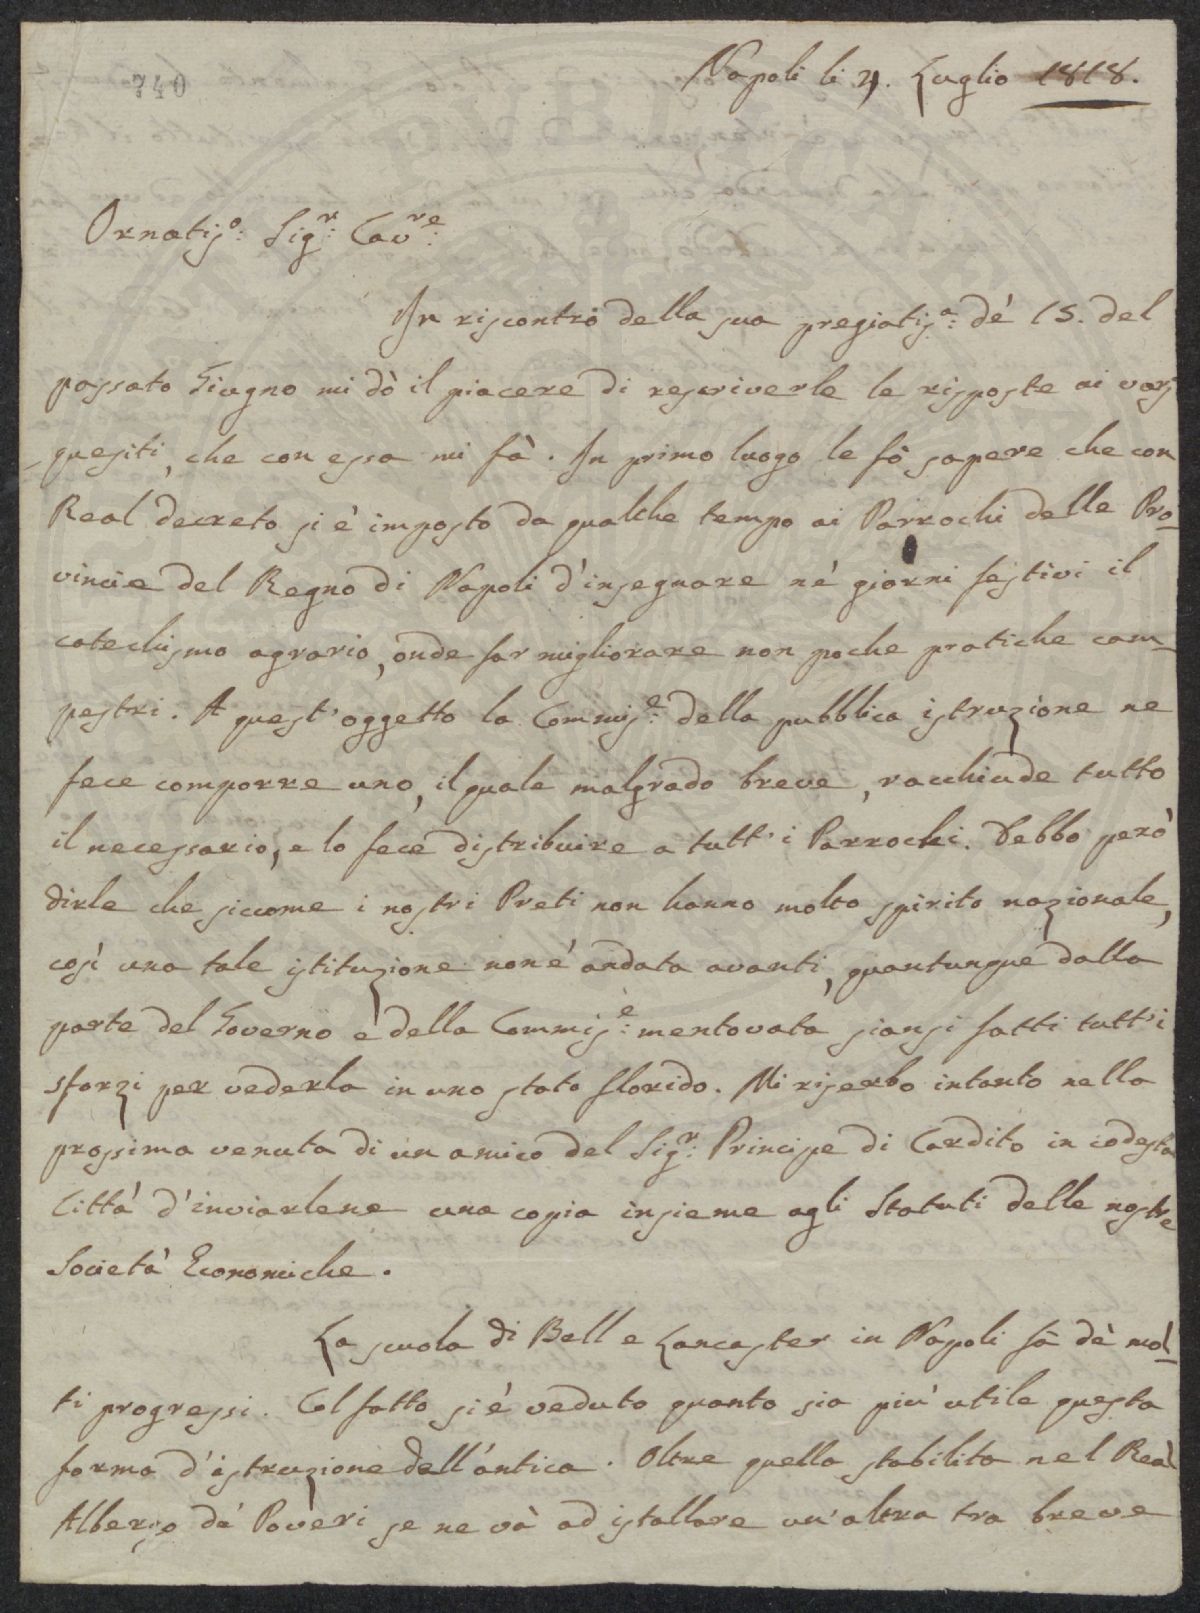 740
Napoli li 4. Luglio 1818.
Ornatis.º: Sig.r: Cav.re:
In riscontro della sua pregiatis.a: dè 15. del
passato Giugno mi dò il piacere di rescriverle le risposte ai varj
quesiti, che con essa mi fà. In primo luogo le fò sapere che con
Real decreto si è imposto da qualche tempo ai Parrochi delle Pro-
vincie del Regno di Napoli d'insegnare nè giorni festivi il
catechismo agrario, onde far migliorare non poche pratiche cam-
pestri. A quest'oggetto la Commis.e: della pubblica istruzione ne
fece comporre uno, il quale malgrado breve, racchiude tutto
il necessario, e lo fece distribuire a tutt'i Parrochi. Debbo però
dirle che siccome i nostri Preti non hanno molto spirito nazionale,
così una tale istituzione non è andata avanti, quantunque dalla
parte del Governo e della Commis.e: mentovata siansi fatti tutt'i
sforzi per vederla in uno stato florido. Mi riserbo intanto nella
prossima venuta di un amico del Sig.r: Principe di Cardito in codesta
Città d'inviarlene una copia insieme agli Statuti delle nostre
Società Economiche.
La scuola di Bell e Lancaster in Napoli fà dè mol-
ti progressi. Col fatto si è veduto quanto sia più utile questa
forma d'istruzione dell'antica. Oltre quella stabilita nel Real
Albergo dà Poveri se ne và ad istallare un'altra tra breve